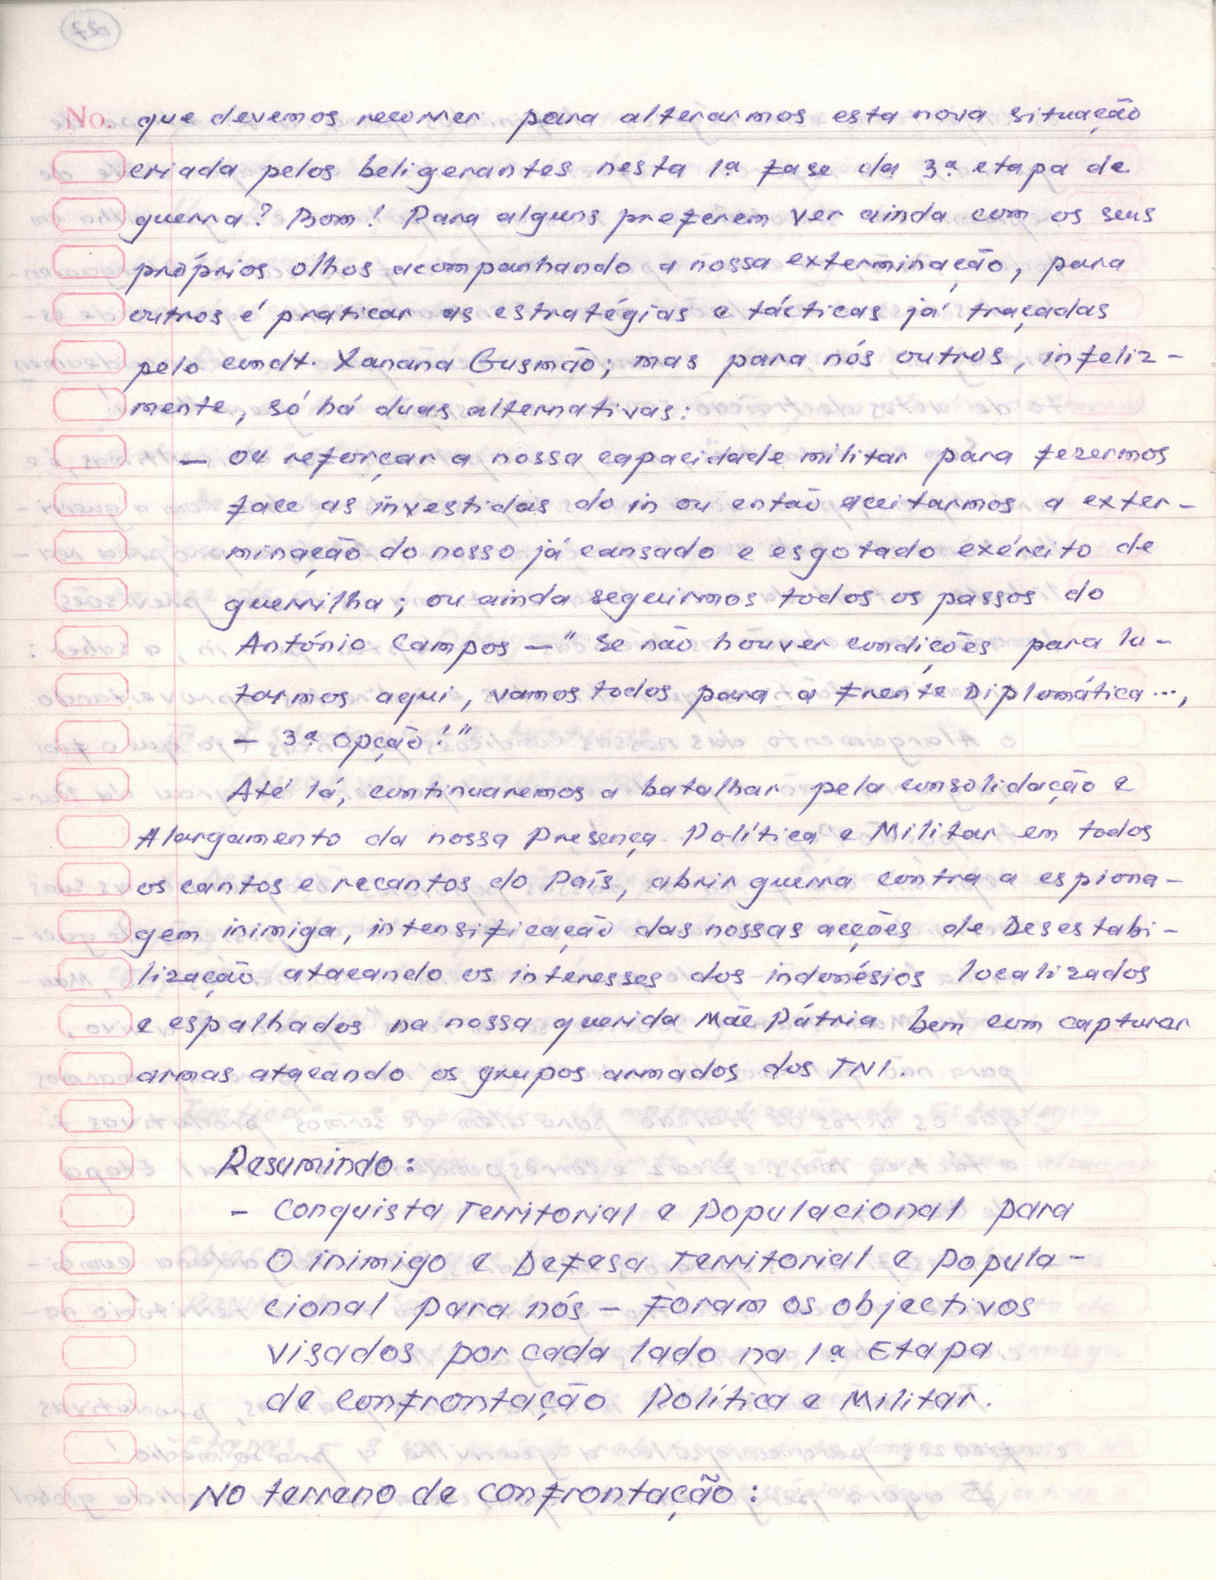 27
No. que devemos recorrer para alterarmos esta nova situação
criada pelos beligerantes nesta 1ª fase da 3ª etapa de
guerra? Bom! Para alguns preferem ver ainda com os seus
próprios olhos acompanhando a nossa exterminação, para
outros é praticar as estratégias e tácticas já traçadas
pelo comdt. Xanana Gusmão; mas para nós outros, infeliz-
mente, só há duas alternativas:
— ou reforçar a nossa capacidade militar para fezermos
face as investidas do in ou então aceitarmos a exter-
minação do nosso já cansado e esgotado exército de
guerrilha; ou ainda seguirmos todos os passos do
António Campos — " se não houver condições para lu-
tarmos aqui, vamos todos para a frente Diplomática...,
— 3ª opção!"
Até lá, continuaremos a batalhar pela consolidação e
Alargamento da nossa Presença Política e Militar em todos
os cantos e recantos do País, abrir guerra contra a espiona-
gem inimiga, intensificação das nossas acções de Desestabi-
lização atacando os interesses dos indonésios localizados
e espalhados na nossa querida Mãe Pátria bem com capturar
armas atacando os grupos armados dos TNI.
Resumindo:
- Conquista Territorial e Populacional para
O inimigo e Defesa Territorial e Popula-
cional para nós — foram os objectivos
visados por cada lado na 1ª Etapa
de confrontação Política e Militar.
No terreno de confrontação: